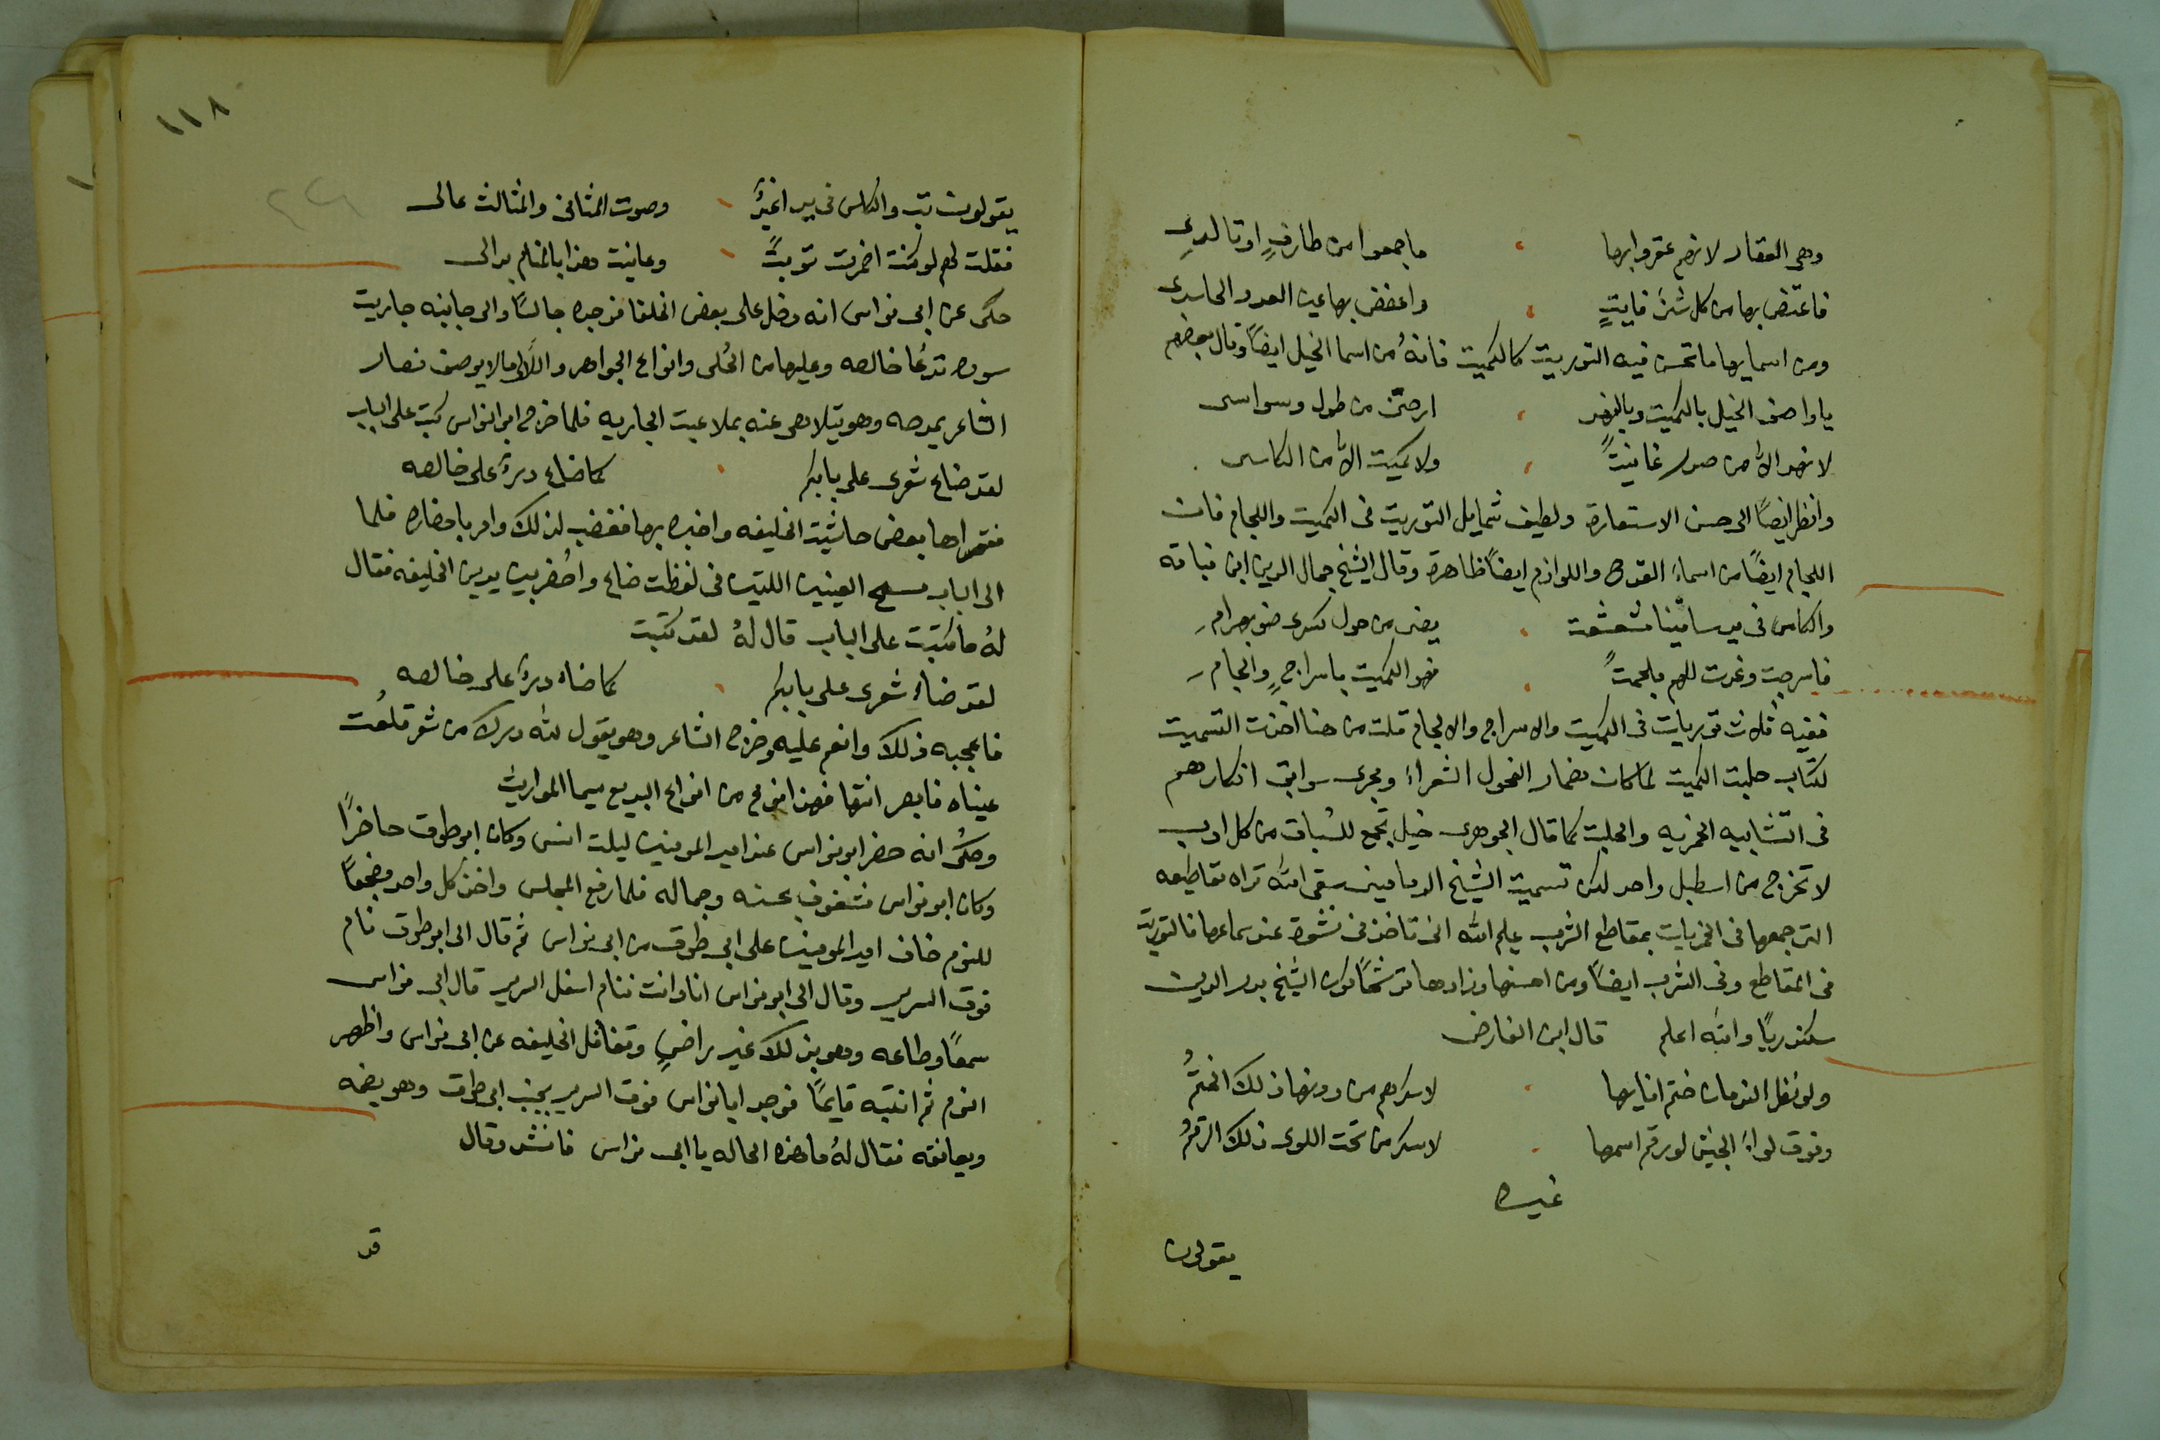 وهي العقار لانهم عقروا بها ما جمعوا من طارفٍ او تالدي
فاعتض بها من كل شئ فايتٍ واغضض بها عين العدو الحاسدي
ومن اسمايها ما تحسن فيه التوريت كالكميت فانهُ من اسما الخيل ايضًا وقال بعضهم
يا واصف الخيل بالكميت وبالنهد ارحني من طول وسواسى
لا نهد الا من صدر غانيتٍ ولا كميت الا من الكاسى
وانظر ايضًا الى حسن الاستعارة ولطيف شمايل التوريت في الكميت واللجام فان
اللجام ايضًا من اسماء القدح واللوازم ايضًا ظاهرة وقال الشيخ جمال الدين ابن نباته
والكاس في يد ساقينا مشعشعت يضى من حول كسرى ضو بهرام
فاسرجت وغدت للهم ملجمتً فهو الكميت باسراجٍ والجام
ففيه ثلاث توريات في الكميت والاسراج والالجام قلت من هنا اخذت التسميت
لكتاب حلبت الكميت لما كان مضمار الفحول الشعراء ومجرى سوابق افكارهم
في التشابيه الخمريه والحلبت كما قال الجوهرى خيل تجمع للسباق من كل اوب
لا تخرج من اسطبل واحد لكن تسميت الشيخ الدمامينى سقى الله ثراه تقاطيعه
التى جمعها في الخمريات بمقاطع الشرب يعلم الله انى تاخذنى نشوة عند سماعها فالتوريت
في المقاطع وفى الشرب ايضًا ومن احسنها وزادها ترشحًا كون الشيخ بدر الدين
سكندريًا والله اعلم قال ابن الفارض
ولو نظر الندمان ختم انايها لاسكرهم من دونها ذلك الختمُ
وفوق لواء الجيش لو رقم اسمها لاسكر من تحت اللوى ذلك الرقمُ
غيره
يقولون
١١٨
يقولون تب والكاس في يد اغيدٌ وصوت المثانى والمثالث عالى
فقلت لهم لو كنت اضمرت توبتً وعاينت هذا بالمنام بدالى
حكى عن ابى نواس انه دخل على بعض الخلفا فوجده جالسًا والى جانبه جاريت
سوده تدعا خالصه وعليها من الحُلى وانواع الجواهر واللالى ما لا يوصف فصار
الشاعر يمدحه وهو يتلاهى عنه بملاعبت الجاريه فلما خرج ابو انواس كتب على الباب
لقد ضاع شعرى على بابكم كما ضاع درٌ على خالصه
فقراها بعض حاشيت الخليفه واخبره بها فغضب لذلك وامر باحضاره فلما
الى الباب مسح العينين اللتين في لفظت ضاع واحُضر بين يدين الخليفه فقال
لهُ ما كتبت على الباب قال لهُ لقد كتبت
لقد ضاءُ شعرى على بابكم كما ضاء درٌ على خالصه
فاعجبه ذلك وانعم عليه وخرج الشاعر وهو يقول لله درك من شعر قلعُت
عيناه فابصر انتها فهذا نوع من انواع البديع سيما المواريث
وحكى انه حضر ابو نواس عند امير المومنين ليلت انس وكان ابو طوق حاضرًا
وكان ابو نواس مشغوف بحسنه وجماله فلما رفع المجلس واخذ كل واحد مضجعًا
للنوم خاف امير المومنين على ابى طوق من ابى نواس ثم قال الى ابو طوق نام
فوق السرير وقال الى ابو نواس انا وانت ننام اسفل السرير قال ابى نواس
سمعًا وطاعه وهو بذلك غير راضٍ وتغافل الخليفه عن ابى نواس واظهر
النوم ثم انتبه قايمًا فوجد ابا نواس فوق السرير بجنب ابى طوق وهو يضمه
ويعانقه فقال لهُ ما هذه الحاله يا ابى نواس فانشد وقال
قد